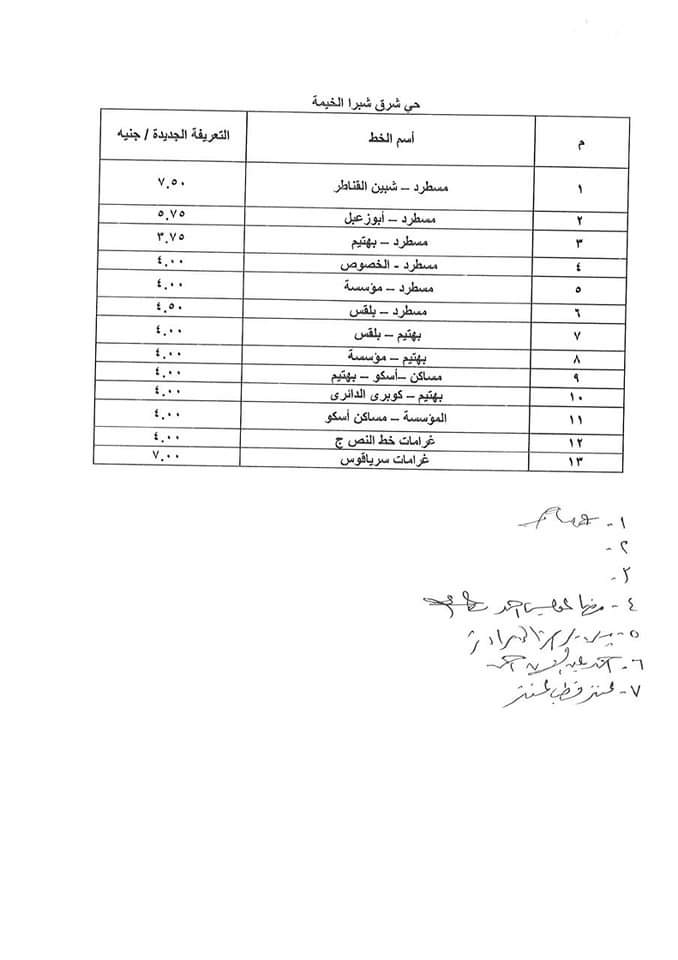 حي شرق شبرا الخيمة
م أسم الخط التعريفة الجديدة / جنيه
١ مسطرد – شبين القناطر ٧.٥٠
٢ مسطرد – أبوزعبل ٥.٧٥
٣ مسطرد – بهتيم ٣.٧٥
٤ مسطرد - الخصوص ٤.٠٠
٥ مسطرد – مؤسسة ٤.٠٠
٦ مسطرد – بلقس ٤.٥٠
٧ بهتيم – بلقس ٤.٠٠
٨ بهتيم – مؤسسة ٤.٠٠
٩ مساكن –أسكو – بهتيم ٤.٠٠
١٠ بهتيم – كوبرى الدائرى ٤.٠٠
١١ المؤسسة – مساكن أسكو ٤.٠٠
١٢ غرامات خط النص ج ٤.٠٠
١٣ غرامات سرياقوس ٧.٠٠
١-
٢-
٣-
٤-
٥-
٦-
٧- قطب